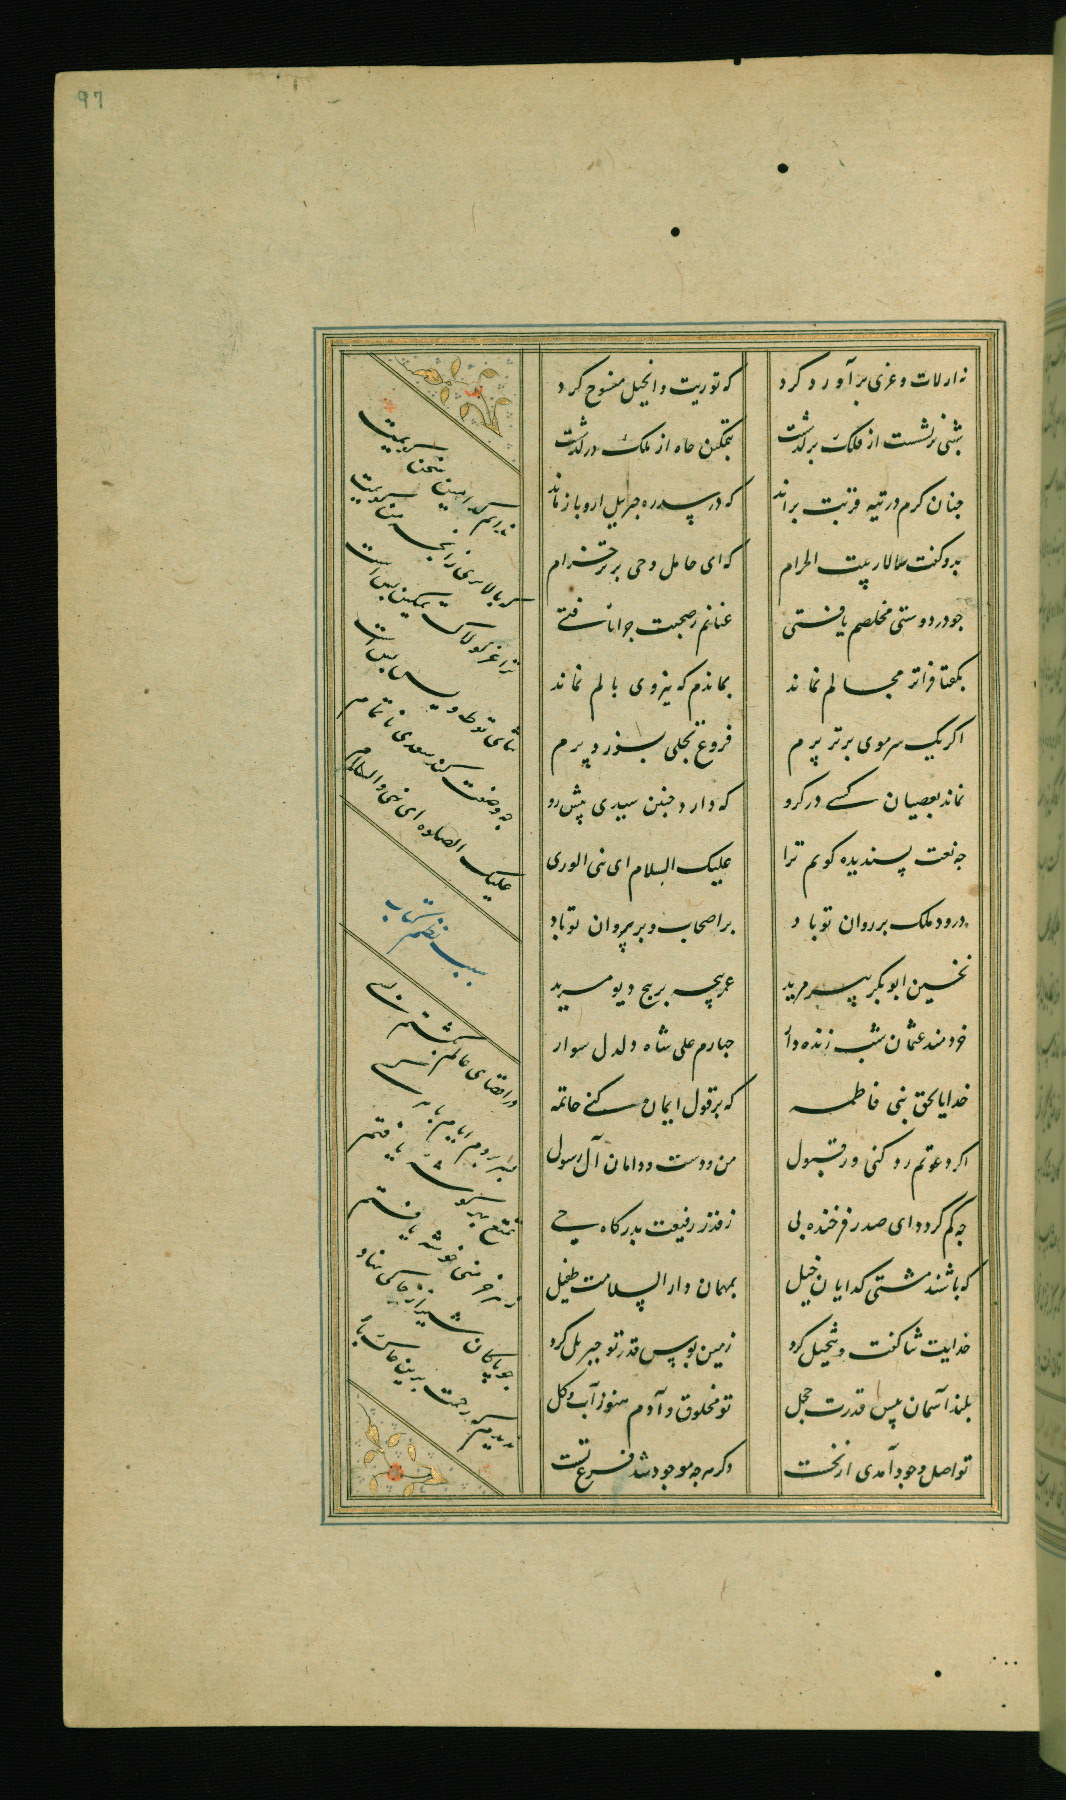 97
نه از لات و عزی برآورد کرد
که توریت و انجیل منسوخ کرد
شبی برنشست از فلک برگذشت
بتمکین جاه از ملک درگذشت
چنان کرم در تیه قربت براند
که در سدره جبریل ازو باز ماند
بدو گفت سالار بیت الحرام
که ای حامل وحی برتر خرام
چو در دوستی مخلصم یافتی
عنانم ز صحبت چرا تافتی
بگفتا فراتر مجالم نماند
بماندم که نیروی بالم نماند
اگر یک سر موی برتر پرم
فروغ تجلی بسوزد پرم
نماند بعصیان کسی در گرو
که دارد چنین سیدی پیش رو
چه نعت پسندیده گویم ترا
علیک السلام ای نبی الوری
درود ملک بر روان تو باد
بر اصحاب و بر پیروان تو باد
نخستین ابوبکر پیر مرید
عمر پنجه بر پیچ دیو مرید
خردمند عثمان شب زنده دار
چهارم علی شاه دلدل سوار
خدایا بحق بنی فاطمه
که بر قول ایمان کنی خاتمه
اگر دعوتم رد کنی ور قبول
من و دست و دامان آل رسول
چه کم گردد ای صدر فرخنده پی
ز قدر رفیعت بدرگاه حی
که باشند مشتی گدایان خیل
بمهمان دار السلامت طفیل
خدایت ثنا گفت و تبجیل کرد
زمین بوس قدر تو جبریل کرد
بلند آسمان پیش قدرت خجل
تو مخلوق و آدم هنوز آب و گل
تو اصل وجود آمدی از نخست
دگر هر چه موجود شد فرع تست
ندانم کدامین سخن گویمت
که بالاتری زانچه من گویمت
ترا عز لولاک تمکین بس است
ثنای تو طه و یس بس است
چه وصفت کند سعدی ناتمام
علیک الصلوه ای نبی والسلام
سبب نظم کتاب
در اقصای عالم بگشتم بسی
بسر بردم ایام با هر کسی
تمتع بهر گوشه یافتم
ز هر خرمنی خوشه یافتم
چو پاکان شیراز خاکی نهاد
ندیدم که رحمت برین خاک باد